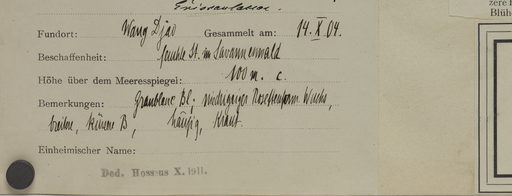 Eriocaulaceae.
Fundort: Wang Djao Gesammelt am: 14. X. 04.
Beschaffenheit: feuchte St. im Savannenwald
Höhe über dem Meeresspiegel: 100 m. c.
Bemerkungen: Graublaue Bl; niedriger Rosettenform. Wuchs,
breitere, kürzere B, häufig, Kraut.
Einheimischer Name:
Ded. Hosseus X. 1911.
zere
Blüh